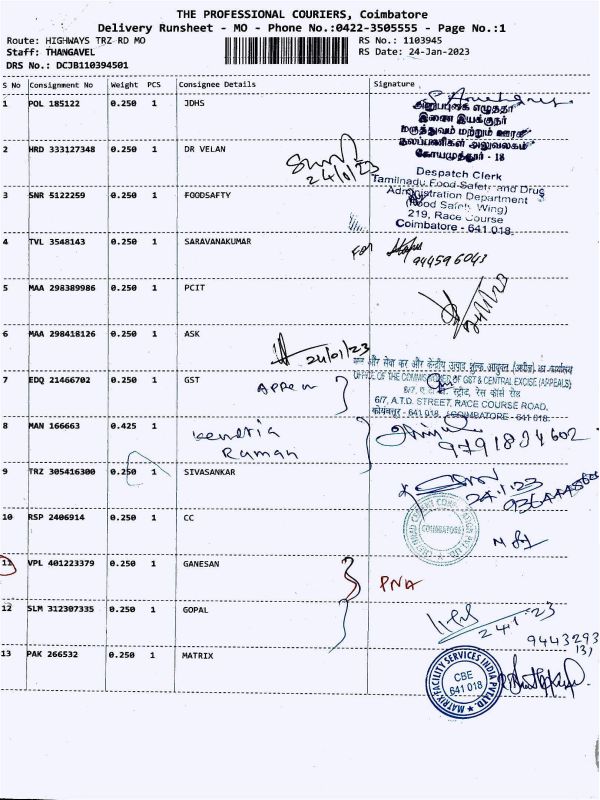 THE PROFESSIONAL COURIERS, Coimbatore
Delivery Runsheet - MO - Phone No.:0422-3505555 - Page No.:1
Route: HIGHWAYS TRZ RD MO
RS No.: 1103945
Staff: THANGAVEL
RS Date: 24-Jan-2023
DRS No.: DCJB110394501
S No Consignment No Weight PCS Consignee Details Signature
1 POL 185122 0.250 1 JDHS
அனுப்புகை எழுத்தர்
இணை இயக்குநர்
மருத்துவம் மற்றும் ஊரக
நலப்பணிகள் அலுவலகம்
கோயமுத்தூர் - 18
2 HRD 333127348 0.250 1 DR VELAN
24/1/23
Despatch Clerk
Tamilnadu Food Safety and Drug
Administration Department
(Food Safety Wing)
219, Race Course
Coimbatore - 641 018.
3 SNR 5122259 0.250 1 FOODSAFTY
4 TVL 3548143 0.250 1 SARAVANAKUMAR
for
944596043
5 MAA 298389986 0.250 1 PCIT
24/1/23
6 MAA 298418126 0.250 1 ASK
24/01/23
और सेवा कर और केंद्रीय उत्पाद शुल्क आयुक्त (अपील) का कार्यालय
OFFICE OF THE COMMISSIONER OF GST & CENTRAL EXCISE (APPEALS)
6/7, ए.टी.डी. स्ट्रीट, रेस कोर्स रोड
6/7, A.T.D. STREET, RACE COURSE ROAD,
कोयंबत्तूर - 641 018. / COIMBATORE - 641 018.
7 EDQ 21466702 0.250 1 GST
8 MAN 166663 0.425 1
Kendria
Raman
9791834602
9 TRZ 305416300 0.250 1 SIVASANKAR
24.1.23
10 RSP 2406914 0.250 1 CC
COIMBATORE
11 VPL 401223379 0.250 1 GANESAN
PNA
12 SLM 312307335 0.250 1 GOPAL
24.1.23
9443293
13 PAK 266532 0.250 1 MATRIX
MATRIX FACILITY SERVICES INDIA PVT LTD.
CBE
641 018